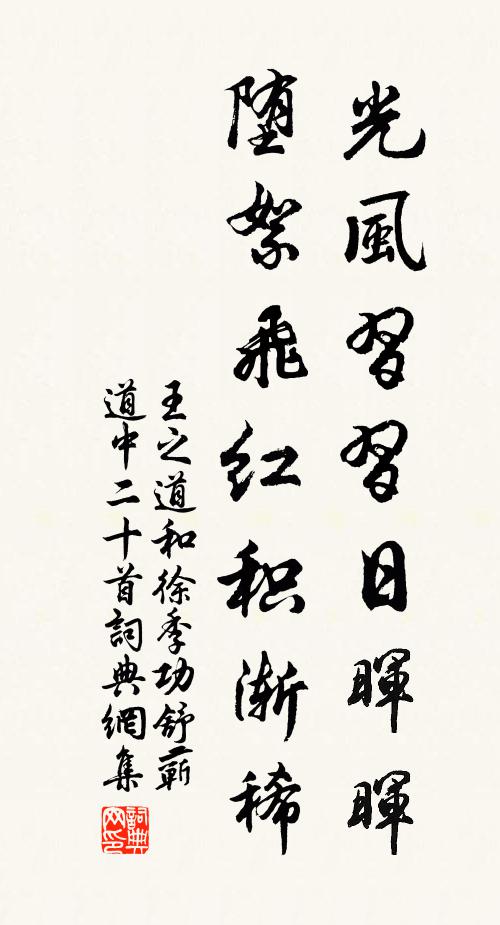 光風習習日暉暉
堕絮飛红积渐稀
王之道和徐季功舒蘄
道中二十首詞典網集
詞典网印